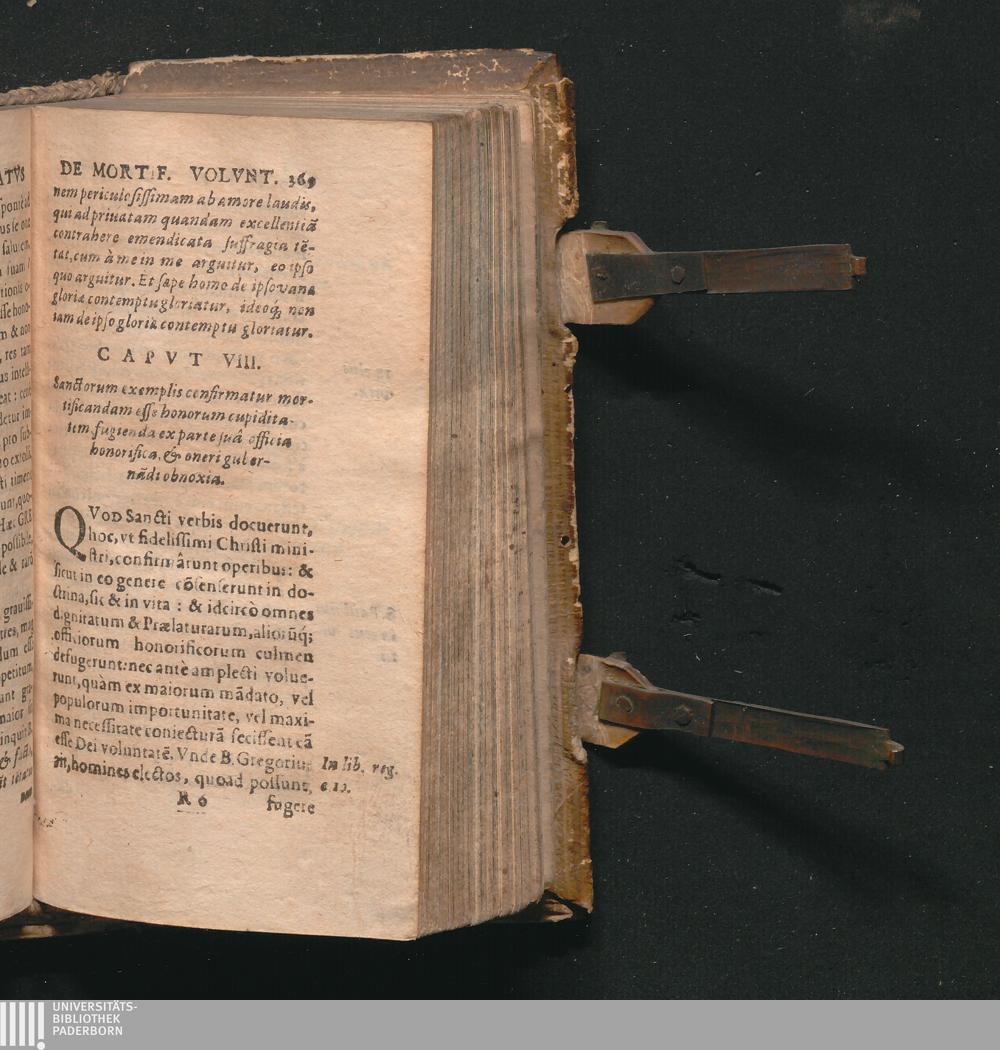 DE MORTIF. VOLVNT. 369
nem periculosissimam ab amore laudis,
qui ad priuatam quandam excellentiã
contrahere emendicata suffragia tẽ-
tat, cum à me in me arguitur, eo ipso
quo arguitur. Et sæpe homo de ipso vanæ
gloriæ contemptu gloriatur, ideoq́; non
iam de ipso gloriæ contemptu gloriatur.
CAPVT VIII.
Sanctorum exemplis confirmatur mor-
tificandam esse honorum cupidita-
tem, fugienda ex parte suâ officia
honorifica, & oneri guber-
nãdi obnoxia.
QVOD Sancti verbis docuerunt,
hoc, vt fidelissimi Christi mini-
stri, confirmârunt operibus: &
sicut in eo genere cõsenserunt in do-
ctrina, sic & in vita: & idcircò omnes
dignitatum & Prælaturarum, aliorũq́;
officiorum honorificorum culmen
defugerunt: nec antè amplecti volue-
runt, quàm ex maiorum mãdato, vel
populorum importunitate, vel maxi-
ma necessitate coniecturã fecissent eã
esse Dei voluntatẽ. Vnde B. Gregorius
ait, homines electos, quoad possunt,
In lib. reg.
c 12.
R 6 fugere
ATVS
UNIVERSITÄTS-
BIBLIOTHEK
PADERBORN